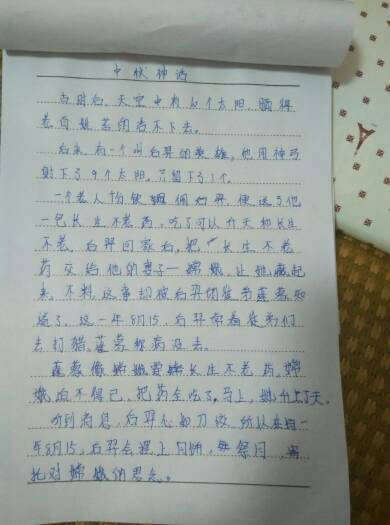 中秋神话
古时后,天空中有10个太阳,
老百姓苦的活不下去。
后来,有一个叫后羿的英雄,他用神弓
射下了9个太阳,只留下了1个。
一个老人很佩后羿,便送了他
一包长生不老药,吃了可以升天和长生
不老,后羿回家后,把长生不老
药交给他的妻子一嫦娥,让她藏起
来,不料,这事却被后羿的徒弟蓬蒙知
道了,这一年8月15,后羿带着徒弟们
去打猎,蓬蒙称病没去。
蓬蒙嫦娥长生不老药,嫦
娥迫不得已,把药全吃了,马上,她升上了天。
听到消息,后羿心如刀绞,所以在每一
年8月15,后羿会摆上月饼,祭月,寄
托对嫦娥的思念。